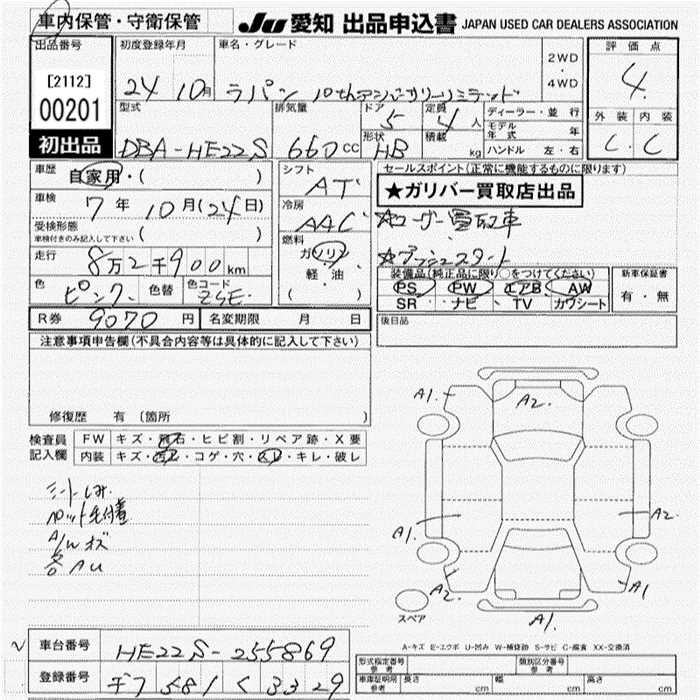 車内保管・守衛保管
JU 愛知 出品申込書 JAPAN USED CAR DEALERS ASSOCIATION
出品番号
[2112]
00201
初出品
初度登録年月
24 10月
車名・グレード
ラパン 10thアニバーサリーリミテッド
2WD
・
4WD
評価点
4
外装 内装
C C
型式
DBA-HE22S
排気量
660cc
ドア
5
形状
HB
定員
4人
積載
kg
ディーラー・並行
モデル年式 年
ハンドル 左・右
車歴
自家用・( )
車検
7年 10月(24日)
受検形態
車検付きのみ記入して下さい ( )
走行
8万2千900km
色
ピンク
色替
色コード
ZSE
シフト
AT
冷房
AAC
燃料
ガソリン
軽・油
( ・ )
セールスポイント(正常に機能するものに限ります)
★ガリバー買取店出品
★ユーザー買取車
★プッシュスタート
装備品(純正品に限り○をつけてください)
PS ・ PW ・ エアB ・ AW
SR ・ ナビ ・ TV ・ カワシート
新車保証書
有・無
R券 9070円
名変期限 月 日
後日品
注意事項申告欄(不具合内容等は具体的に記入して下さい)
修復歴 有 (箇所 )
検査員記入欄
FW キズ・飛石・ヒビ割・リペア跡・X要
内装 キズ・汚レ・コゲ・穴・スレ・キレ・破レ
シートしみ
A/Wキズ
各AU
A1
A2
A1
A2
A2
A1
A1
スペア
A-キズ E-エクボ U-凹み W-補修跡 S-サビ C-腐食 XX-交換済
車台番号
HE22S-255869
登録番号
581 く 3329
型式指定番号 参考
類別区分番号 参考
車庫証明用参考
長さ cm 幅 cm 高さ cm